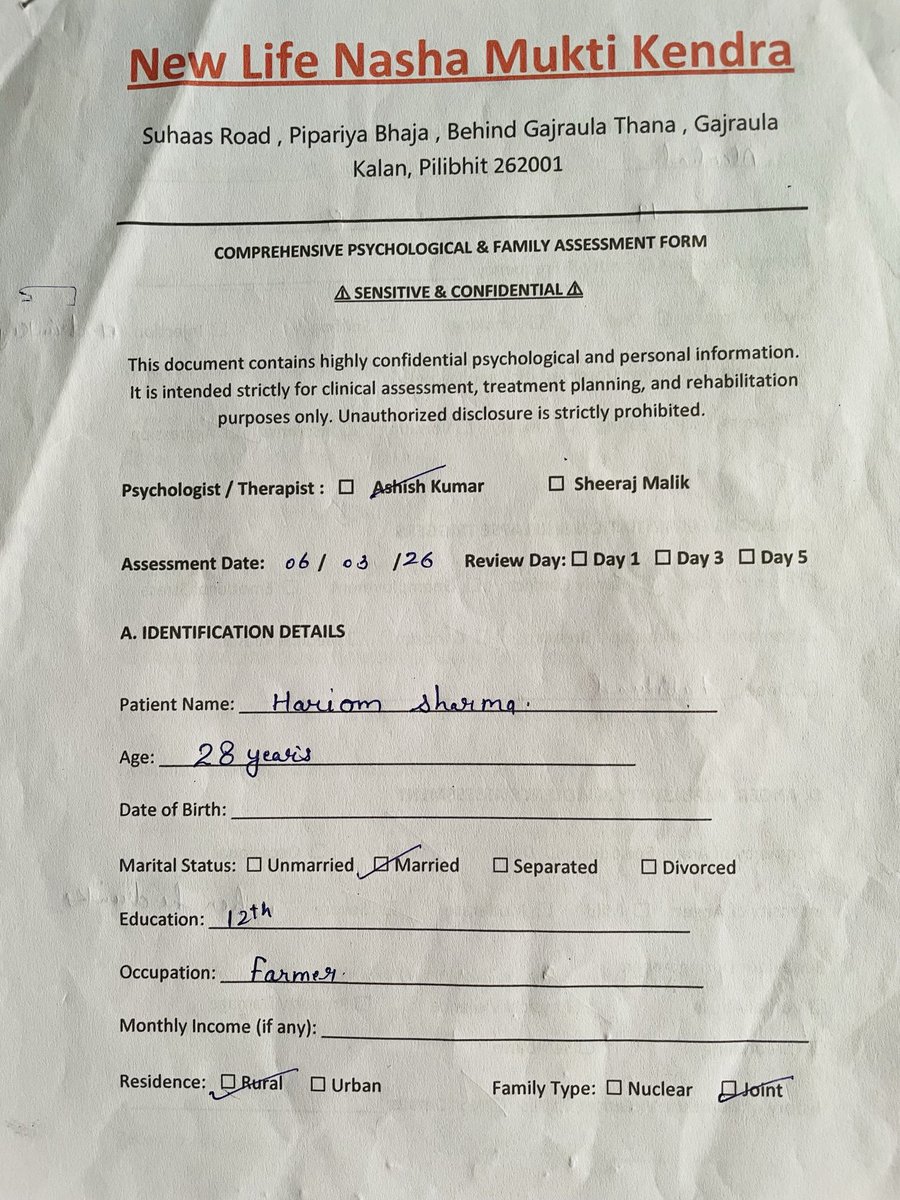 New Life Nasha Mukti Kendra
Suhaas Road , Pipariya Bhaja , Behind Gajraula Thana , Gajraula
Kalan, Pilibhit 262001
COMPREHENSIVE PSYCHOLOGICAL & FAMILY ASSESSMENT FORM
⚠ SENSITIVE & CONFIDENTIAL ⚠
This document contains highly confidential psychological and personal information.
It is intended strictly for clinical assessment, treatment planning, and rehabilitation
purposes only. Unauthorized disclosure is strictly prohibited.
Psychologist / Therapist : ☐ Ashish Kumar ☐ Sheeraj Malik
Assessment Date: 06 / 03 /26 Review Day: ☐ Day 1 ☐ Day 3 ☐ Day 5
A. IDENTIFICATION DETAILS
Patient Name: Hariom Sharma.
Age: 28 years
Date of Birth:
Marital Status: ☐ Unmarried ☑ Married ☐ Separated ☐ Divorced
Education: 12th
Occupation: Farmer.
Monthly Income (if any):
Residence: ☑ Rural ☐ Urban Family Type: ☐ Nuclear ☑ Joint